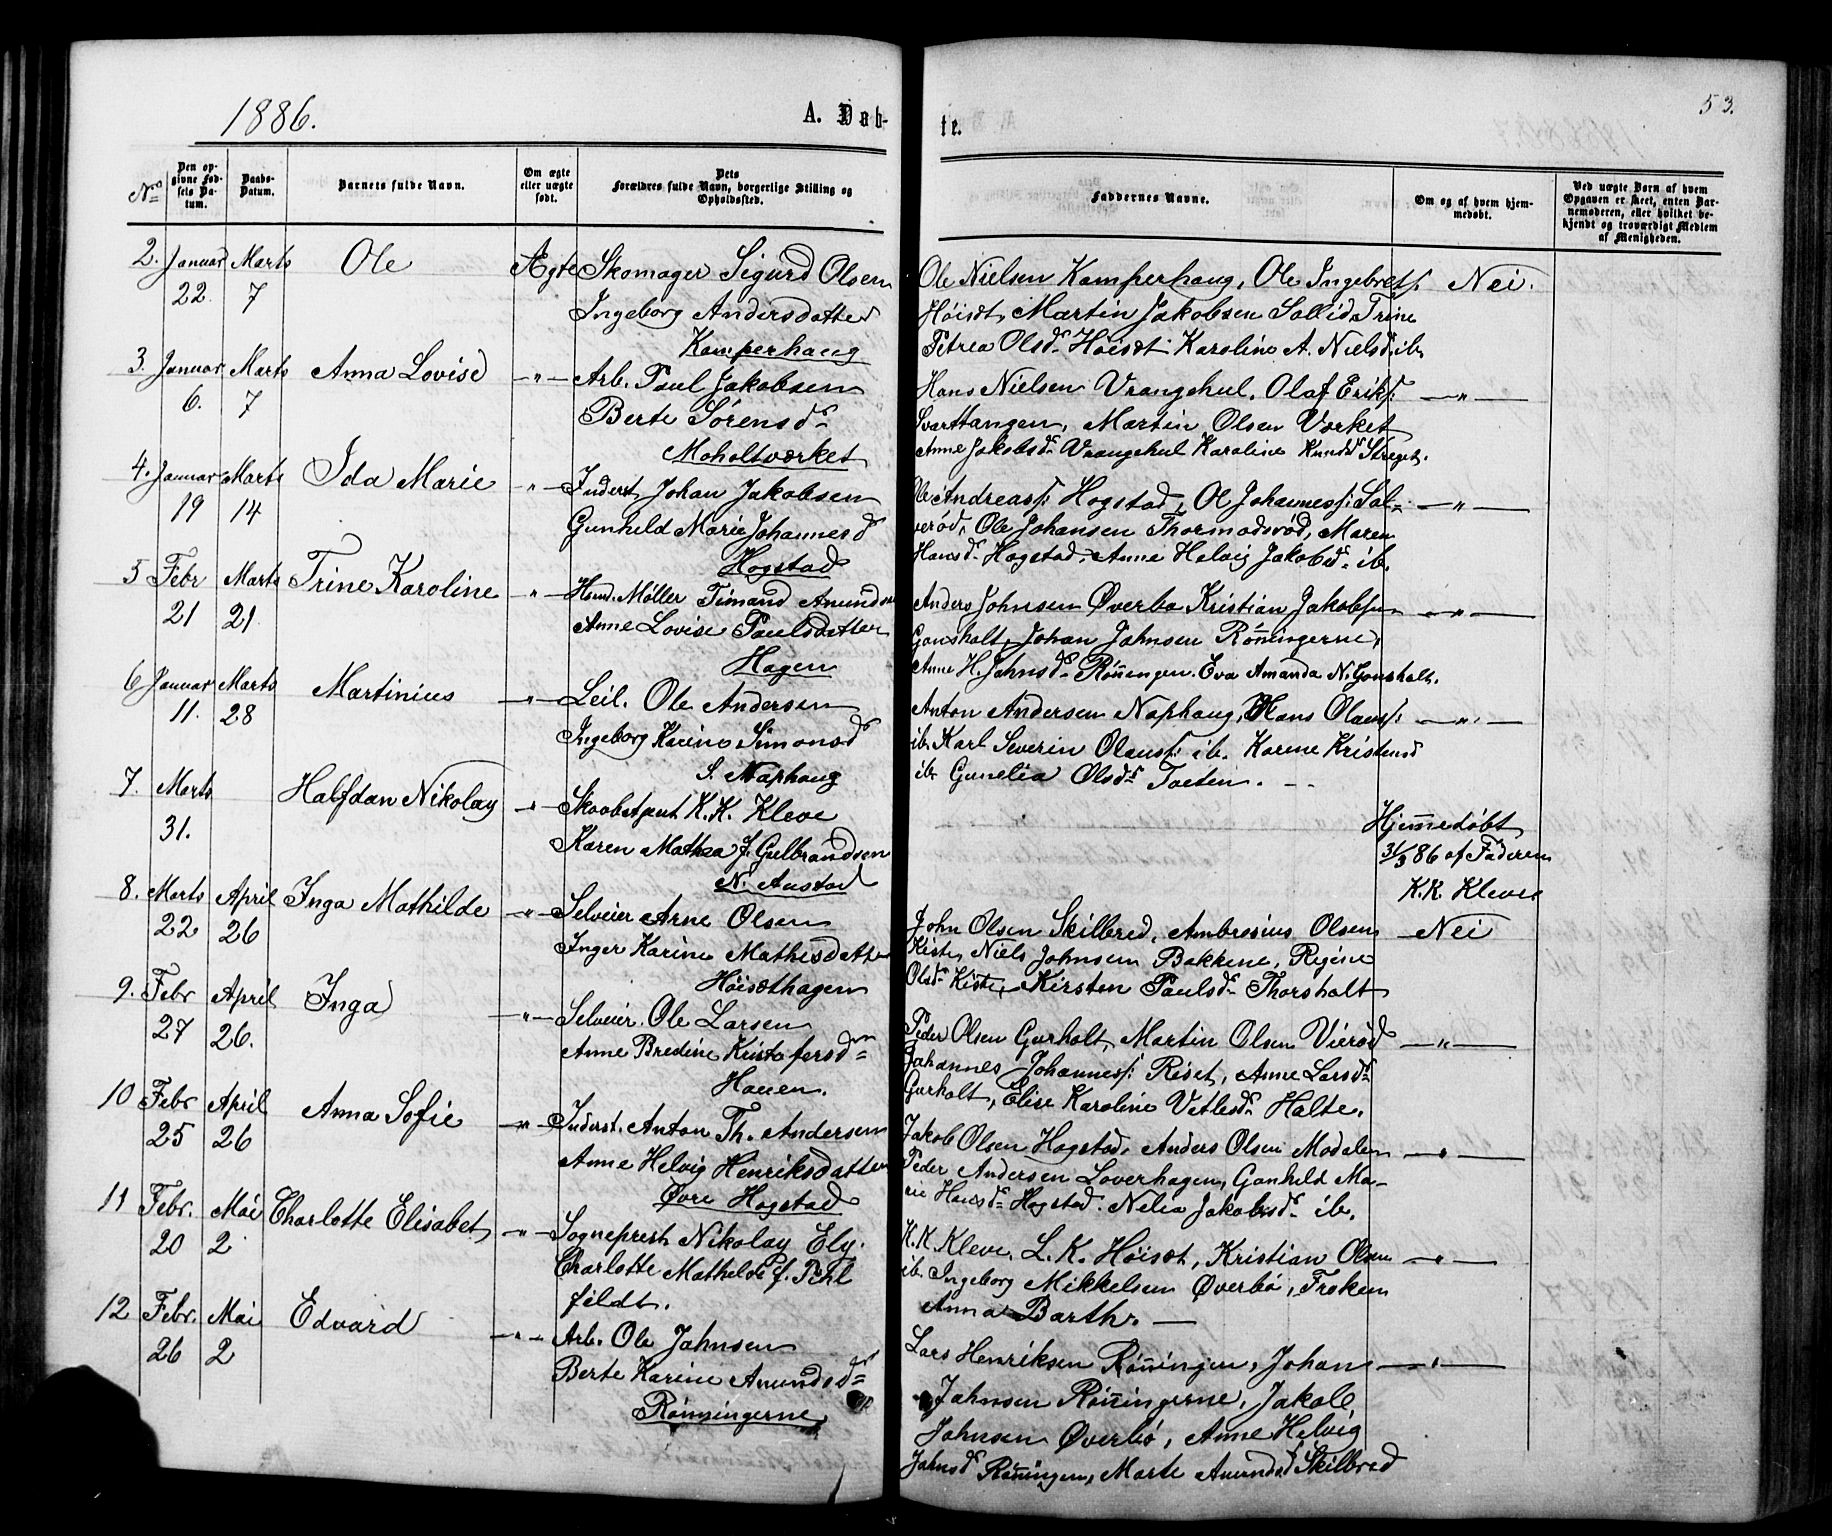 1886.
A. Døb-
te.
53.
No
Den op-
givne Fød-
sels Da-
tum.
Daabs-
Datum.
Barnets fulde Navn.
Om ægte
eller uægte
født.
Dets
Forældres fulde Navn, borgerlige Stilling og
Opholdssted.
Faddernes Navne.
Om og af hvem hjem-
medøbt.
Ved uægte Børn af hvem
Opgaven er skeet, enten Bar-
nemoderen, eller hvilket be-
kjendt og troværdigt Medlem
af Menigheden.
2. Januar Marts Ole Ægte Skomager Sigurd Olsen
22. 7 Ingeborg Andersdatter
Kamperhaug
Ole Nielsen Kamperhaug, Ole Ingebrets: Nei.
Høisæt, Martin Jakobsen Sollid Trine
Petrea Olsd. Høisæt Karoline A. Nielsd. ib.
3. Januar Marts Anna Lovise —"— Arb. Poul Jakobsen
6. 7 Berte Sørensd.
Moholtværket
Hans Nielsen Vrangehul, Olaf Eriks: —"—
Svarttangen, Martin Olsen Værket
Anne Jakobsd. Vrangehul Karoline Knudsd. Streget.
4. Januar Marts Ida Marie —"— Inderst Johan Jakobsen
19 14 Gunhild Marie Johannesd.
Hogstad
Ole Andreass: Hogstad, Ol Johanness: Sol- —"—
verød, Ole Johansen Thormodsrød, Maren
Hansd. Hogstad, Anne Helvig Jakobsd. ib.
5 Febr Marts Trine Karoline —"— Husm. Møller Timand Amundsen
21 21. Anne Lovise Paulsdatter
Hagen
Anders Johnsen Øverbø Kristian Jakobsen —"—
Gonsholt, Johan Johnsen Rønningerne,
Anne H. Johnsd. Rønningen. Eva Amanda N. Gonsholt.
6 Januar Marts Martinius —"— Leil. Ole Andersen
11. 28 Ingeborg Karine Simonsd
S. Naphaug
Anton Andersen Naphaug, Hans Olauss: —"—
ib. Karl Severin Olauss: ib. Karine Kristensd
ib. Gunelia Olsd. Toeten.
7. Marts Halfdan Nikolay —"— Skoobetjent K. K. Kleve
31. Karen Mathea f. Gulbrandsen
N. Austad
Hjemmedøbt
31/3 86 af Faderen
K. K. Kleve
8. Marts April Inga Mathilde —"— Selveier Arne Olsen
22 26 Inger Karine Mathisdatter
Høisæthagen
John Olsen Skilbred, Ambrosius Olsen —Nei
Kiste, Niels Johnsen Bakkene, Regine
Olsd. Kiste, Kirsten Paulsd. Thorsholt
9. Febr April Inga —"— Selveier Ole Larsen
27 26. Anne Bredine Kristofersd.
Hauen.
Peder Olsen Gurholt, Martin Olsen Vierød —"—
Johannes Johanness: Riset, Anne Larsd.
Gurholt, Elise Karoline Vetlesd. Halte.
10 Febr April Anna Sofie —"— Inderst. Anton Th. Andersen
25 26 Anne Helvig Henriksdatter
Øvre Hogstad
Jakob Olsen Hogstad, Anders Olsen Modalen —"—
Peder Andersen Loverhagen, Gunhild Ma-
rie Hansd. Hogstad. Nelia Jakobsd. ib.
11 Febr. Mai Charlotte Elisabet —"— Sogneprest Nikolay Ely.
20 2 Charlotte Mathilde f. Pihl
feldt.
K. K. Kleve, L. K. Høisæt, Kristian Olsen —"—
ib. Ingeborg Mikkelsen Øverbø, Frøken
Anna Barth. —
12 Febr. Mai Edvard —"— Arb. Ole Jahnsen
26 2 Berte Karine Amundsd.
Rønningerne
Lars Henriksen Rønningen, Johan —"—
Jahnsen Rønningerne, Jakob
Johnsen Øverbø, Anne Helvig
Jahnsd. Rønningen, Marte Amundsd Skilbred